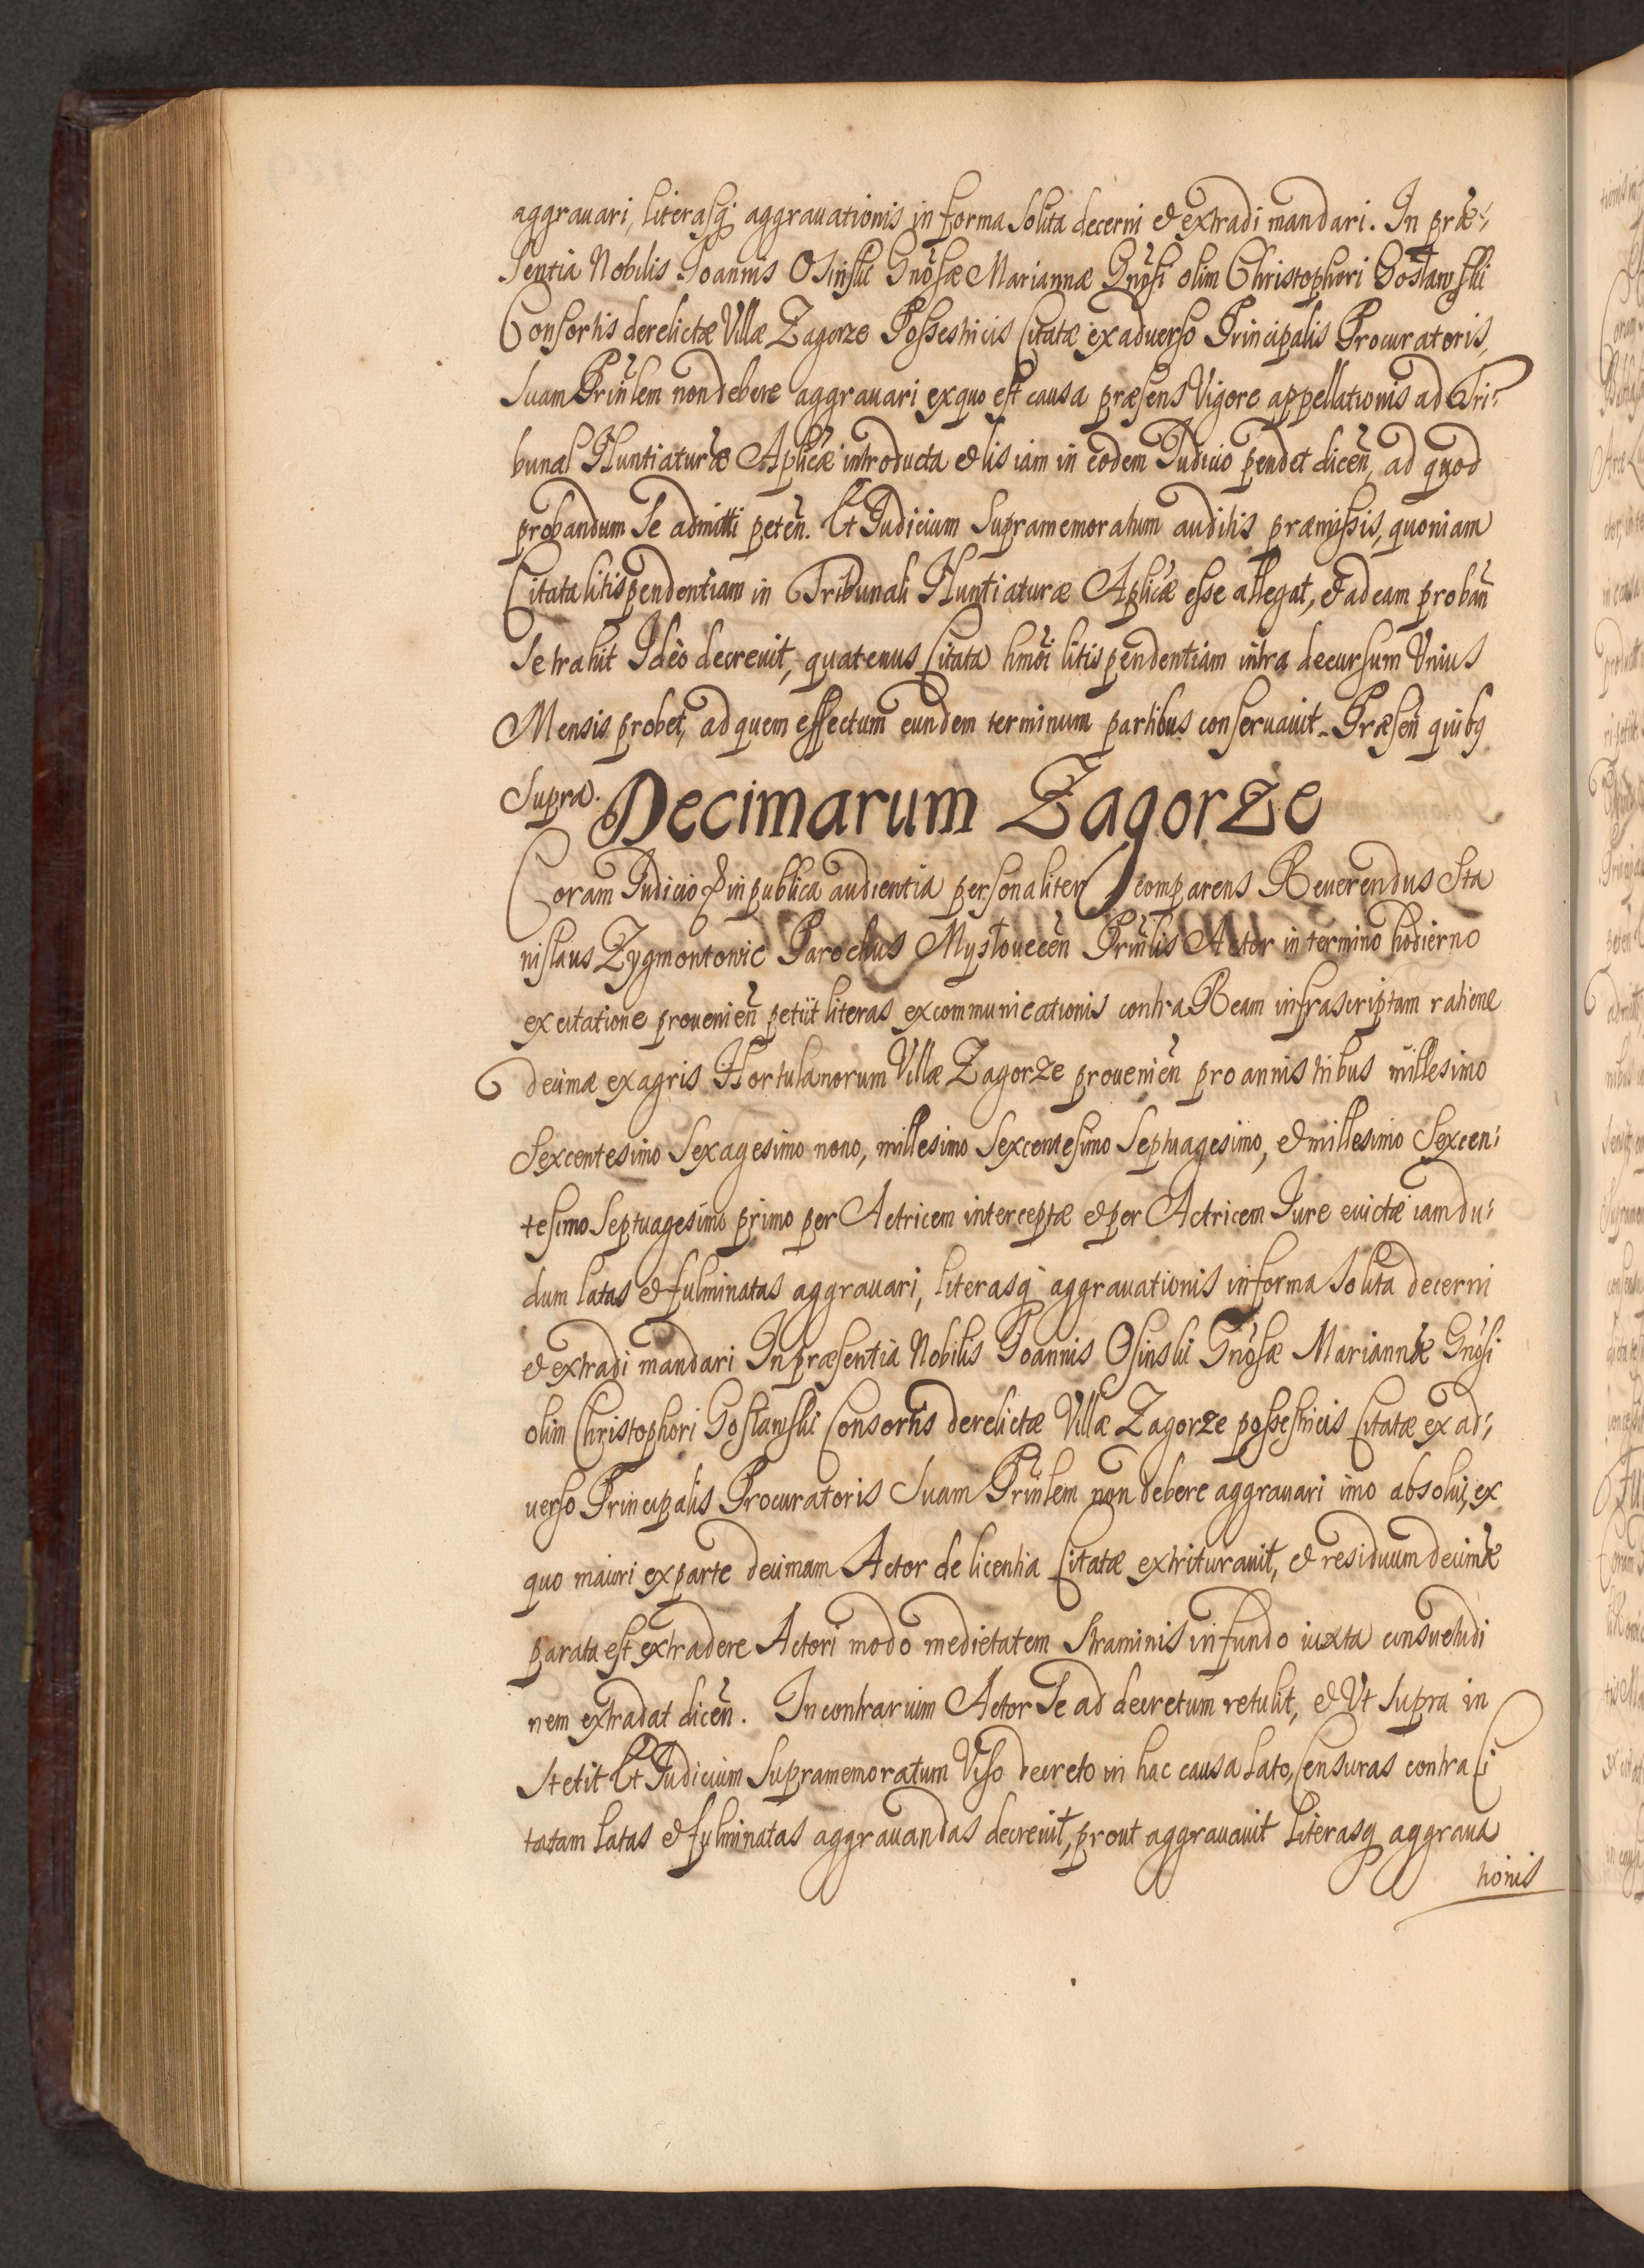 aggrauari, literasq; aggrauationis in forma solita decerni & extradi mandari. In præ-
sentia Nobilis Joannis Osinski Gnosæ Mariannæ Gnosi olim Christophori Gosławski
Consortis derelictæ Villæ Zagorze Possestricis Citatæ ex aduerso Principalis Procuratoris,
suam Prinlem non debere aggrauari ex quo est causa præsens Vigore appellationis ad Tri-
bunal Nuntiaturæ Aplicæ introducta & lis iam in eodem Judicio pendet dicen̄, ad quod
probandum se admitti peten̄. Et Judicium supramemoratum auditis præmissis, quoniam
Citata litispendentiam in Tribunali Nuntiaturæ Aplicæ esse allegat, & ad eam proban̄
se trahit Ideò decreuit, quatenus Citata hmōi litispendentiam intra decursum Vnius
Mensis probet, ad quem effectum eundem terminum partibus conseruauit. Præsen̄ quibq
supra. Decimarum Zagorze
Coram Judicio & in publica audientia personaliter comparens Reuerendus Sta
nislaus Zygmontowic Parochus Mysłouecen̄ Prinlis Actor in termino hodierno
ex citatione prouenien̄ petiit literas excommunicationis contra Ream infrascriptam ratione
decimæ ex agris Hortulanorum Villæ Zagorze prouenien̄ pro annis tribus millesimo
sexcentesimo sexagesimo nono, millesimo sexcentesimo septuagesimo, & millesimo sexcen-
tesimo septuagesimo primo per Actricem interceptæ & per Actricem Jure euictæ iamdu-
dum latas & fulminatas aggrauari, literasq; aggrauationis in forma solita decerni
& extradi mandari In præsentia Nobilis Joannis Osinski Gnosæ Mariannæ Gnosi
olim Christophori Gosławski Consortis derelictæ Villæ Zagorze possestricis Citatæ ex ad-
uerso Principalis Procuratoris suam Prinlem non debere aggrauari imo absolui, ex
quo maiori ex parte decimam Actor de licentia Citatæ extriturauit, & residuum decimæ
parata est extradere Actori modo medietatem straminis in fundo iuxta consuetudi
nem extradat dicen̄. In contrarium Actor se ad decretum retulit, & Vt supra in
stetit Et Judicium supramemoratum Viso decreto in hac causa lato, Censuras contra Ci
tatam latas & fulminatas aggrauandas decreuit, prout aggrauauit Literasq aggraua
tionis